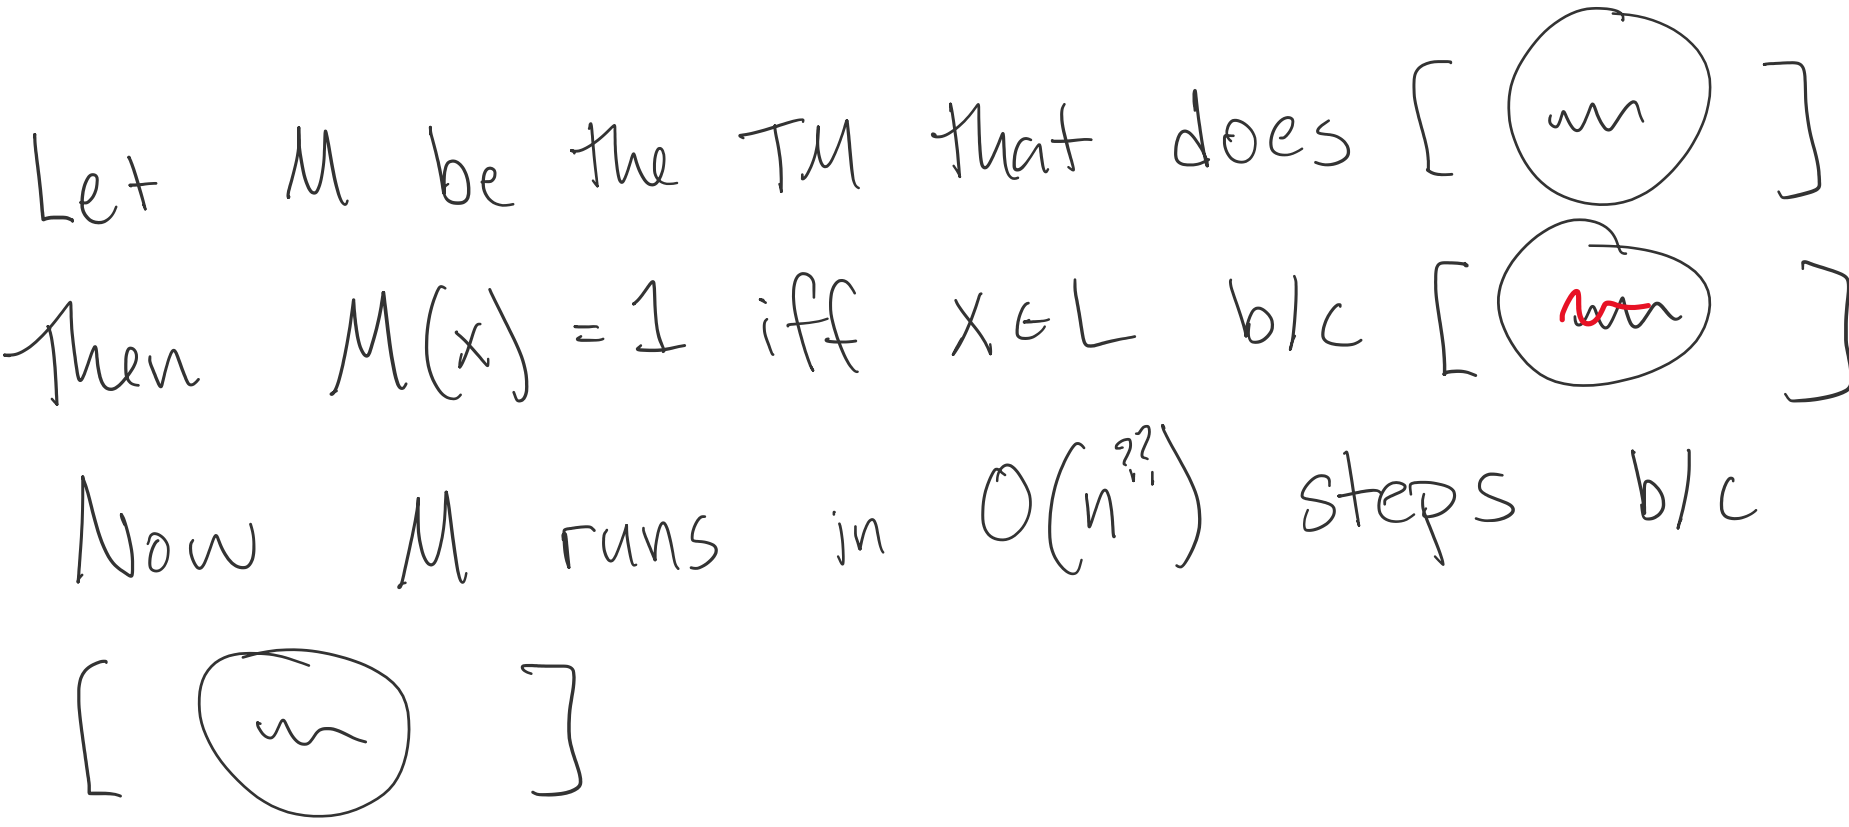 Let M be the TM that does [ ]
Then M(x) = 1 iff x ∈ L b/c [ ]
Now M runs in O(n^??) steps b/c
[ ]